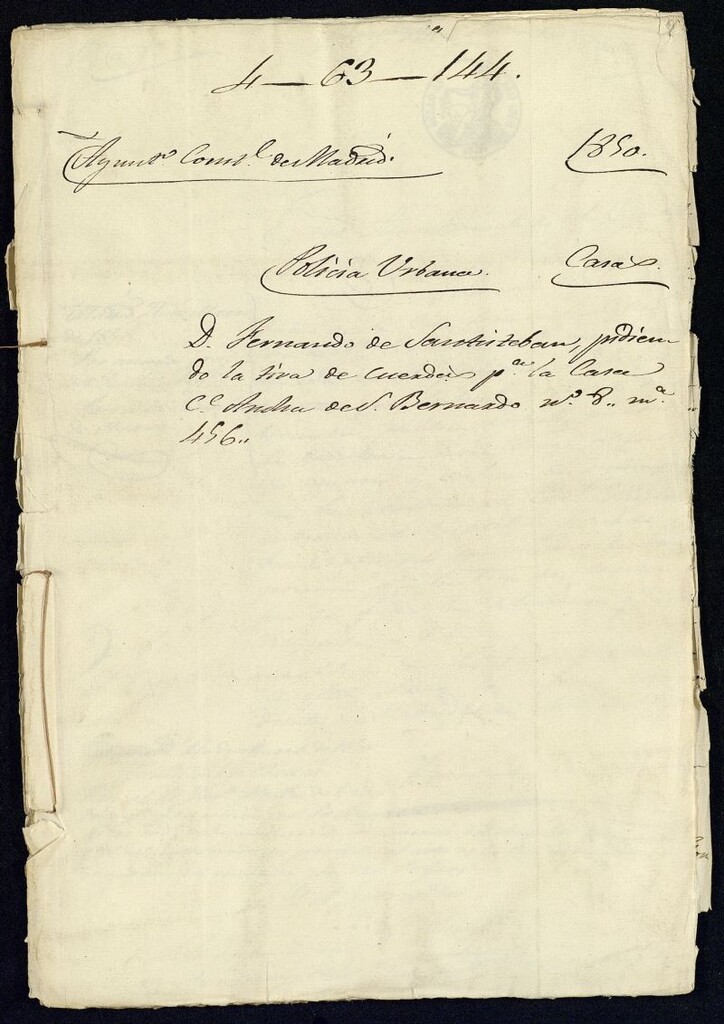 4—63—144.
Ayunt.º Const.l de Madrid.
1850.
Policia Urbana.
Casas.
D. Fernando de Santisteban, pidien-
do la tira de cuerdas p.ª la Casa
C.e Ancha de S. Bernardo n.º 8.. m.ª
456..